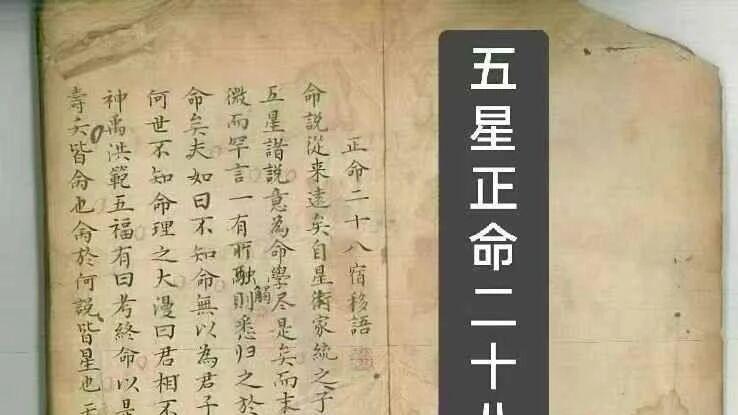 五星正命二十八
正命二十八宿移語
命說從来遠矣自星術家統之子
五星諸說意為命學尽是矣而末
微而罕言一有所融則悉归之於
觸
命矣夫如曰不知命無以為君子
何世不知命理之大漫曰君相不
神禹洪範五福有曰考終命以是
壽夭皆命也命於何說皆星也